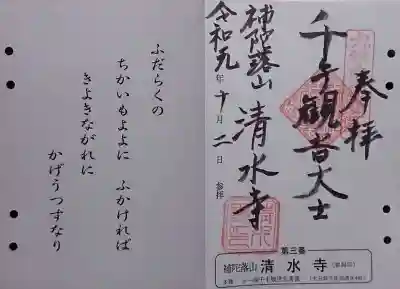 ふだらくの
ちかいもよよに ふかければ
きよきながれに
かげうつすなり
奉拝
千手観音大士
補陀落山 清水寺
令和元年十月二日 参拝
第三番
補陀落山 清水寺